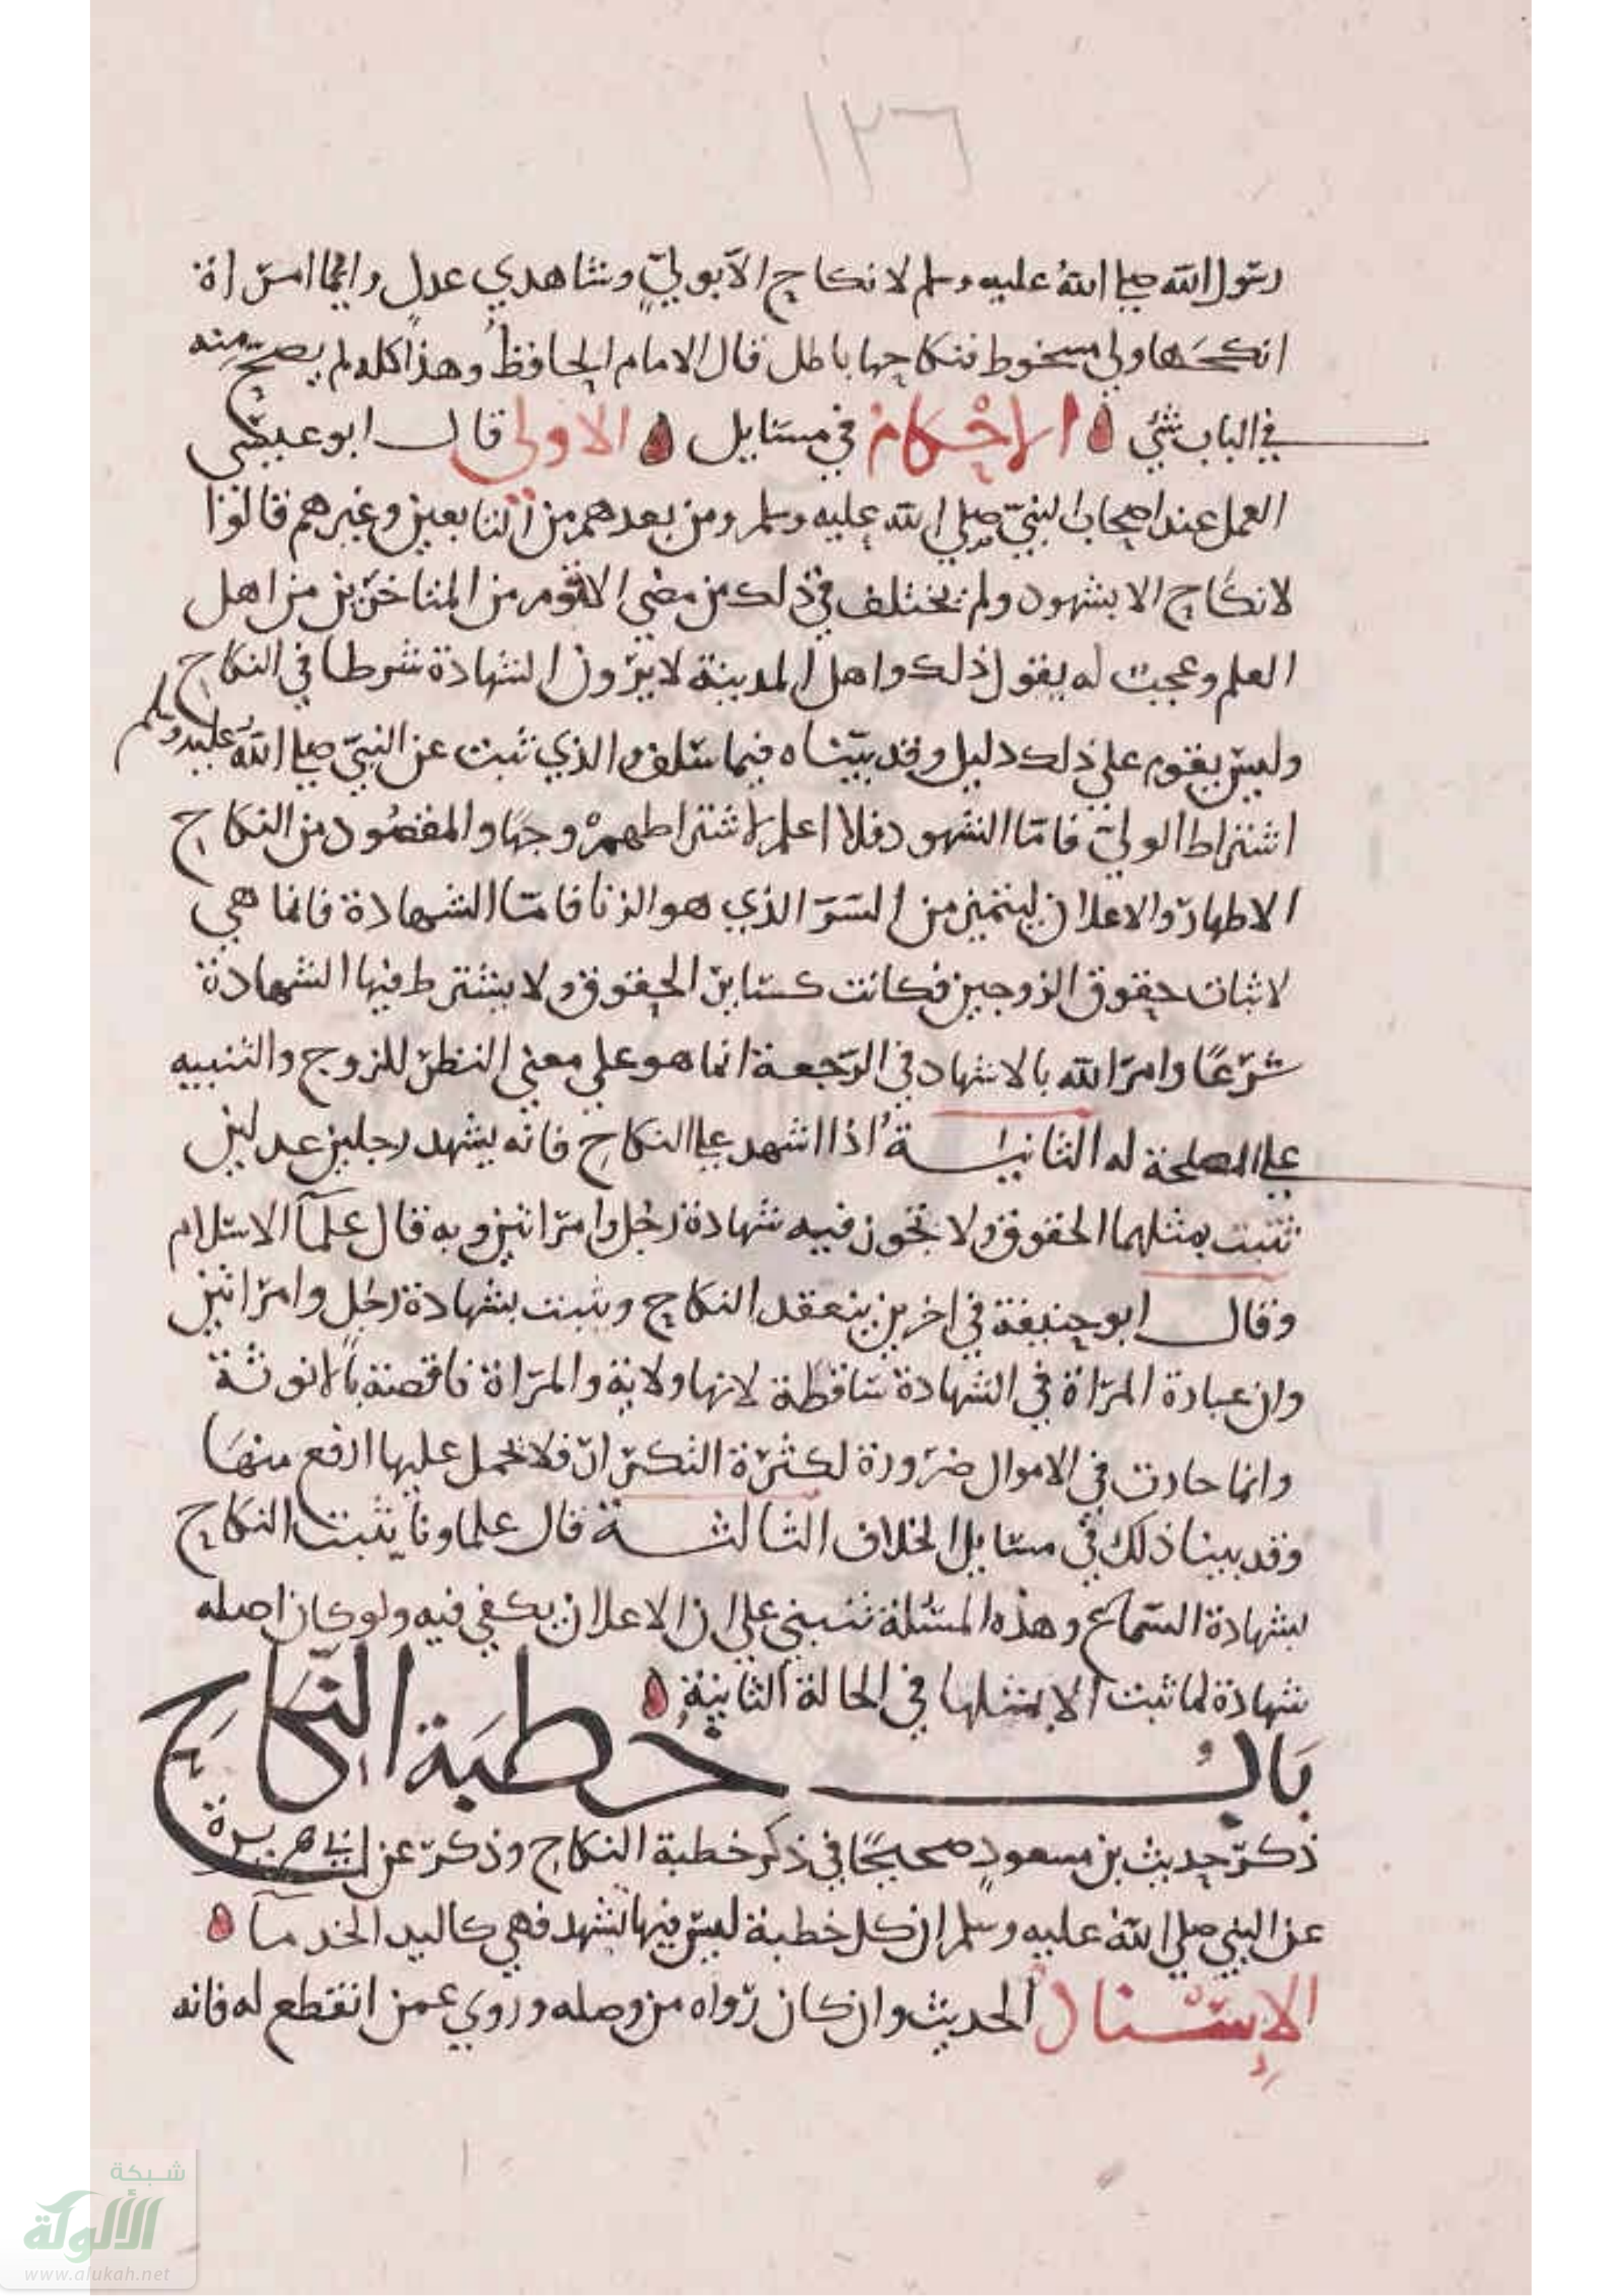 ١٢٦
رسول الله صلى الله عليه وسلم لا نكاح الا بولي وشاهدي عدل وايما امراة
انكحها ولي مسخوط فنكاحها باطل قال الامام الحافظ وهذا كله لم يصح منه
في الباب شئ الاحكام في مسايل الاولى قال ابو عيسى
العمل عند اصحاب النبي صلى الله عليه وسلم ومن بعدهم من التابعين وغيرهم قالوا
لا نكاح الا بشهود ولم يختلف في ذلك من مضى الا قوم من المتاخرين من اهل
العلم وعجبت له يقول ذلك واهل المدينة لا يرون الشهادة شرطا في النكاح
وليس يقوم على ذلك دليل وقد بيناه فيما سلف والذي ثبت عن النبي صلى الله عليه وسلم
اشتراط الولي فاما الشهود فلا اعلم لاشتراطهم وجها والمقصود من النكاح
الاظهار والاعلان ليتميز من السر الذي هو الزنا فاما الشهادة فانما هي
لاثبات حقوق الزوجين فكانت كساير الحقوق ولا يشترط فيها الشهادة
شرعا وامر الله بالاشهاد في الرجعة انما هو على معنى النظر للزوج والتنبيه
على المصلحة له الثانية اذا اشهد على النكاح فانه يشهد رجلين عدلين
تثبت بمثلهما الحقوق ولا تجوز فيه شهادة رجل وامراتين وبه قال علمآ الاسلام
وقال ابو حنيفة في اخرين ينعقد النكاح ويثبت بشهادة رجل وامراتين
وان عبارة المراة في الشهادة ساقطة لانها ولاية والمراة ناقصة بالانوثة
وانما جازت في الاموال ضرورة لكثرة التكرار فلا يحمل عليها ارفع منها
وقد بينا ذلك في مسايل الخلاف الثالثة قال علماونا يثبت النكاح
بشهادة السماع وهذه المسئلة تنبني على ان الاعلان يكفي فيه ولو كان اصله
شهادة لما ثبت الا بمثلها في الحالة الثانية
باب خطبة النكاح
ذكر حديث بن مسعود صحيحا في ذكر خطبة النكاح وذكر عن ابي هريرة
عن النبي صلى الله عليه وسلم ان كل خطبة ليس فيها تشهد فهي كاليد الجذمآ
الاسناد الحديث وان كان رواه من وصله وروي عمن انقطع له فانه
شبكة
الألوكة
www.alukah.net